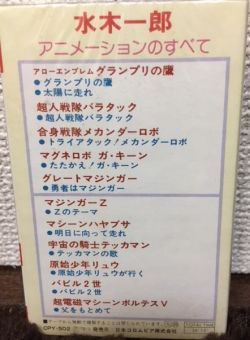 水木一郎
アニメーションのすべて
アローエンブレム グランプリの鷹
● グランプリの鷹
● 太陽に走れ
超人戦隊バラタック
● 超人戦隊バラタック
合身戦隊メカンダーロボ
● トライアタック!メカンダーロボ
マグネロボ ガ・キーン
● たたかえ!ガ・キーン
グレートマジンガー
● 勇者はマジンガー
マジンガーZ
● Zのテーマ
マシーンハヤブサ
● 明日に向って走れ
宇宙の騎士テッカマン
● テッカマンの歌
原始少年リュウ
● 原始少年リュウが行く
バビル2世
● バビル2世
超電磁マシーンボルテスV
● 父をもとめて
CPY-502
発売元 日本コロムビア株式会社
TOTAL TIME